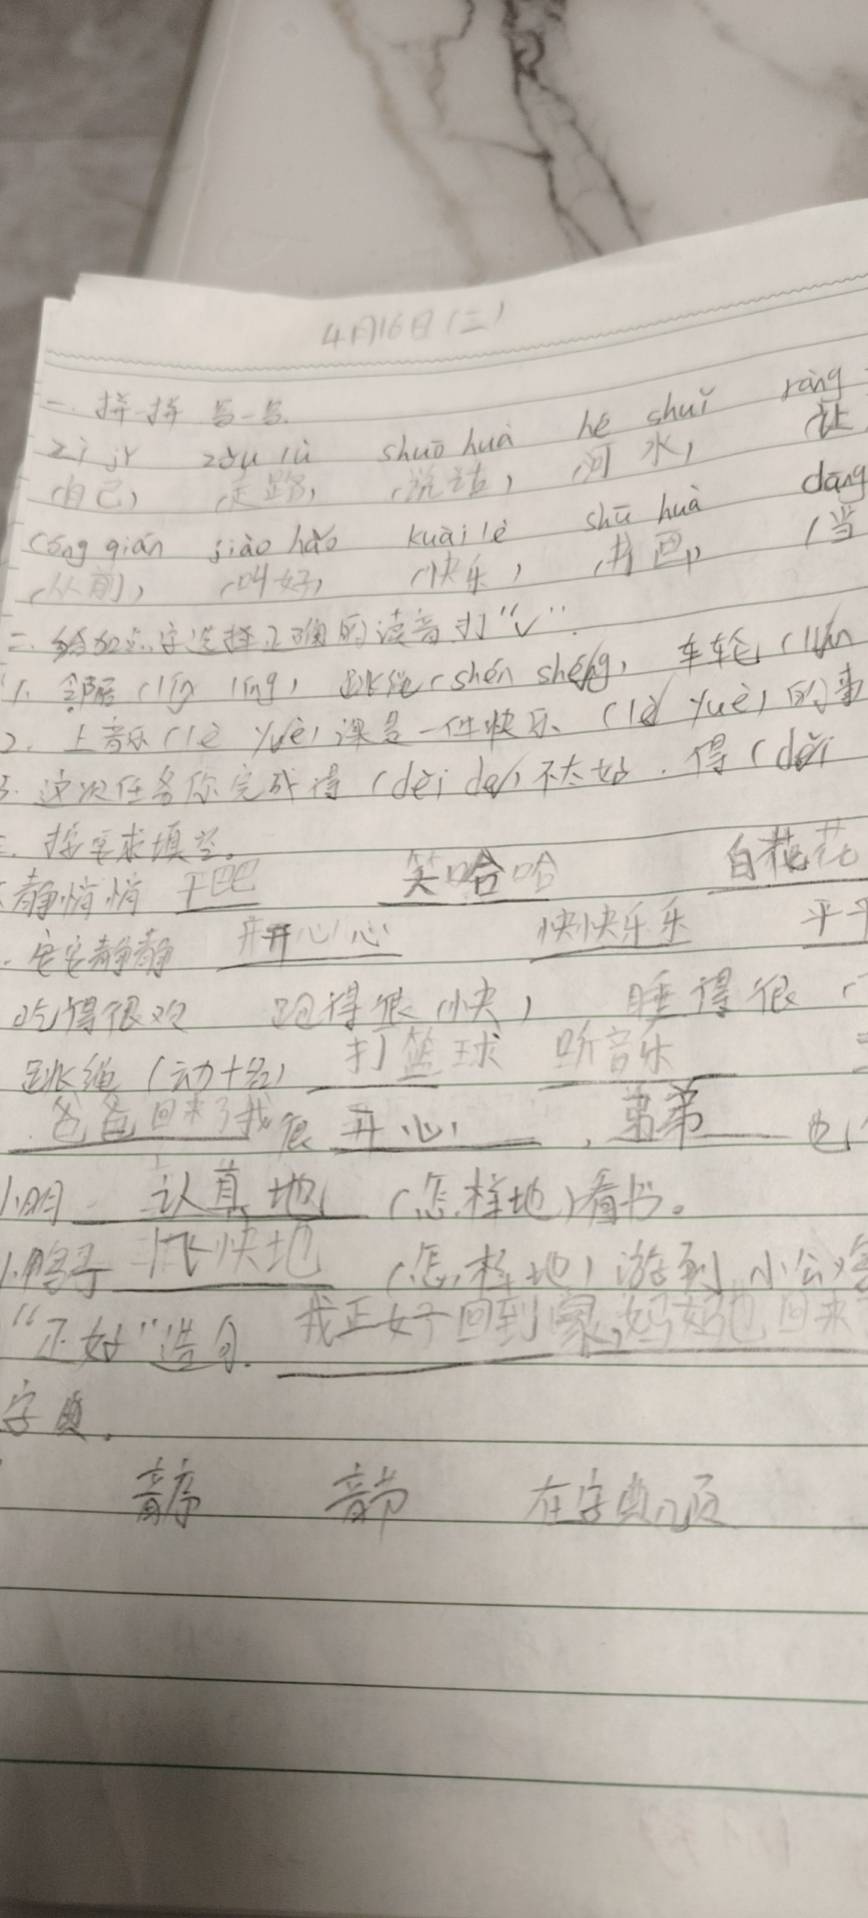 4月16日(二)
一. 拼一拼 写一写.
zì jǐ zǒu lù shuō huà hé shuǐ ràng
(自己) (走路) (说话) (河水) (让
cóng qián jiào hǎo kuài lè shū huà dāng
(从前) (叫好) (快乐) (书画) (当
二. 给加点字选择正确的读音打"√".
1. 邻居(lín líng) 跳绳(shén shéng) 车轮(lún
2. 上音乐(lè yuè)课是一件快乐(lè yuè)的事
3. 这次任务你完成得(děi de)不太好. 得(děi
三. 按要求填空。
静悄悄 干巴巴 笑哈哈 白花花
安安静静 开开心心 快快乐乐 平平
吃得很欢 跑得很(快) 睡得很(
跳绳(动+名) 打篮球 听音乐
爸爸回来了我很开心, 弟弟也
小明 认真地 (怎样地)看书。
小鸭子 飞快地 (怎样地)游到小公鸡
"正好"造句. 我正好回到家,妈妈也回来
字典.
音序 音节 在字典几页